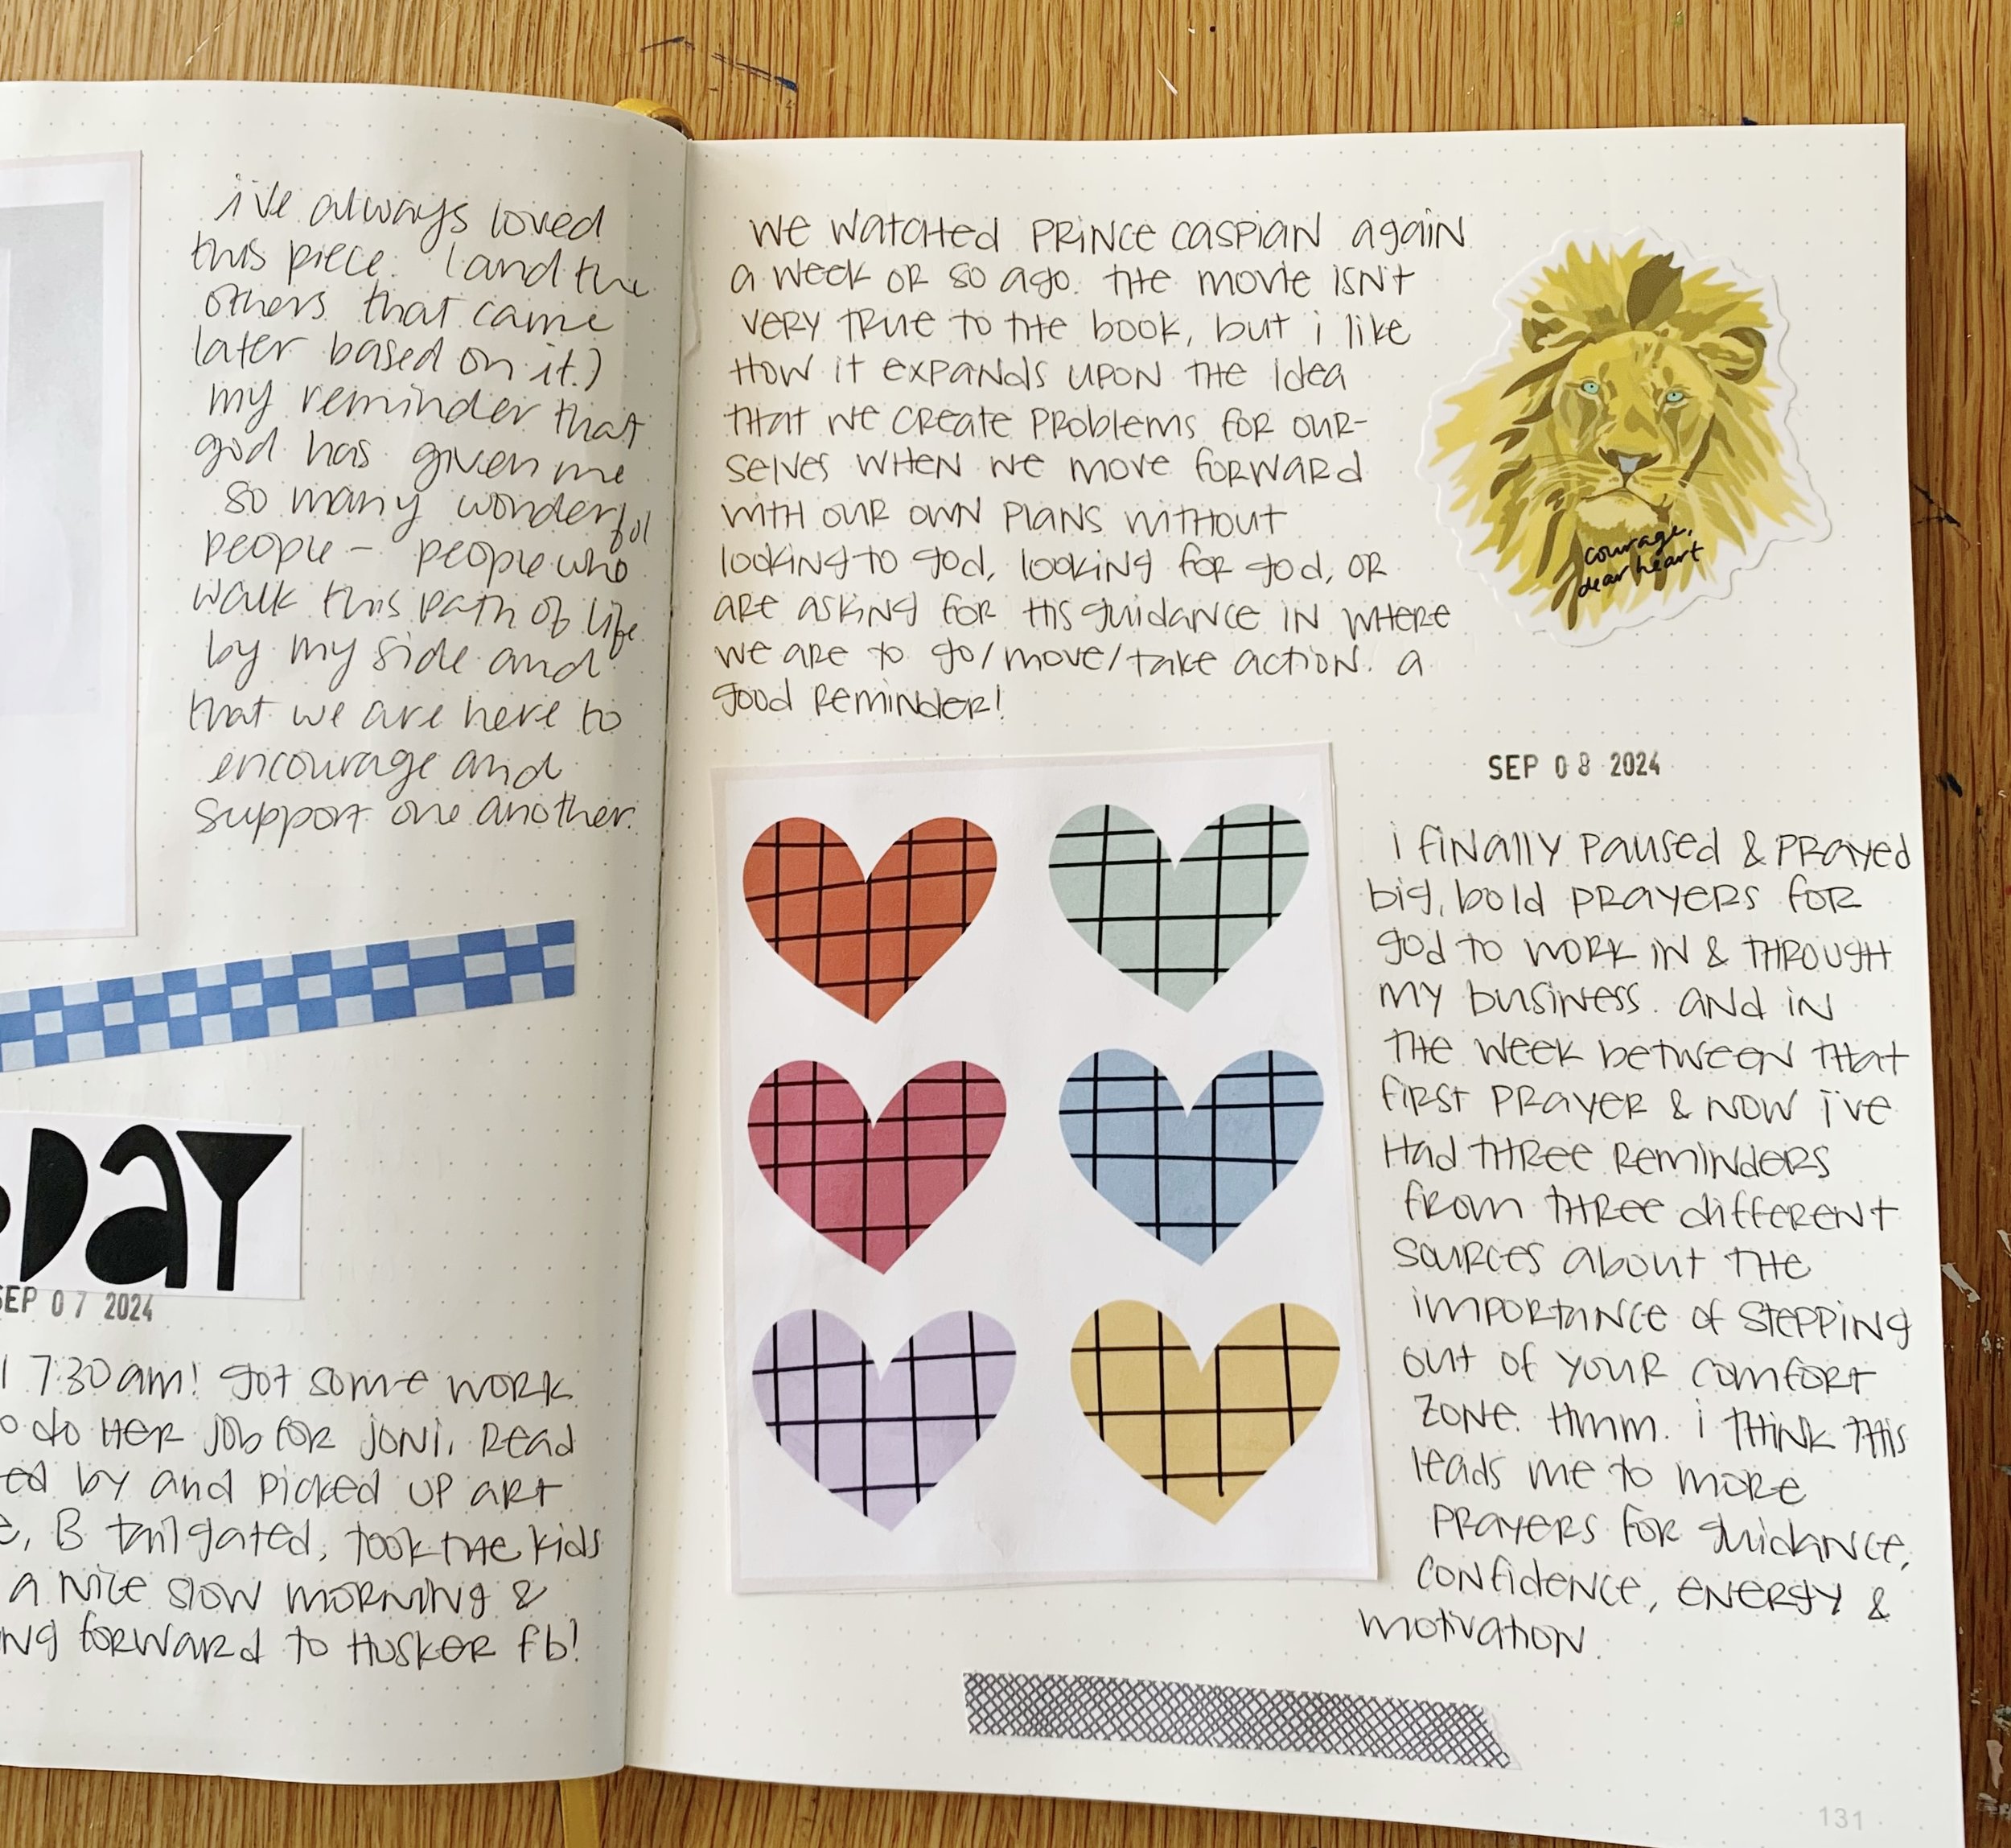 i've always loved
this piece. (and the
others that came
later based on it.)
my reminder that
god has given me
so many wonderful
people - people who
walk this path of life
by my side and
that we are here to
encourage and
support one another.
DAY
SEP 07 2024
7:30 am! got some work
do her job for joni. Read
ed by and picked up art
e, B tailgated, took the kids
a nice slow morning &
ng forward to Husker fb!
we watched Prince Caspian again
a week or so ago. the movie isn't
very true to the book, but i like
how it expands upon the idea
that we create problems for our-
selves when we move forward
with our own plans without
looking to god, looking for god, or
are asking for His guidance in where
we are to go/move/take action. a
good reminder!
courage,
dear heart
SEP 08 2024
i finally paused & prayed
big, bold prayers for
god to work in & through
my business. and in
the week between that
first prayer & now i've
had three reminders
from three different
sources about the
importance of stepping
out of your comfort
zone. Hmm. i think this
leads me to more
prayers for guidance,
confidence, energy &
motivation.
131